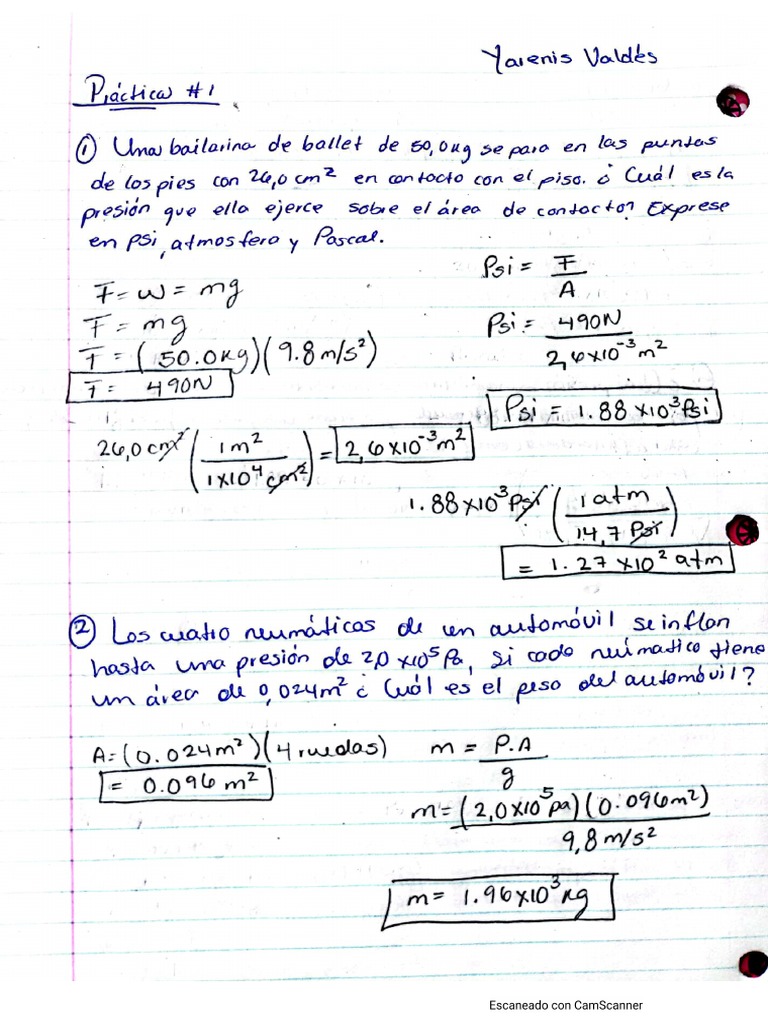 Yarenis Valdés
Práctica #1
① Una bailarina de ballet de 50,0kg se para en las puntas
de los pies con 26,0 cm² en contacto con el piso. ¿ Cuál es la
presión que ella ejerce sobre el área de contacto? Exprese
en psi, atmosfera y Pascal.
F = W = mg
F = mg
F = (50.0kg)(9.8 m/s²)
F = 490N
Psi = F/A
Psi = 490N / 2,6x10⁻³ m²
Psi = 1.88 x10³ Psi
26,0 cm² (1 m² / 1x10⁴ cm²) = 2,6x10⁻³ m²
1.88 x10³ Psi (1 atm / 14,7 Psi)
= 1.27 x10² atm
② Los cuatro neumáticos de un automóvil se inflan
hasta una presión de 2,0 x10⁵ Pa, si cada neúmatico tiene
un área de 0,024m² ¿ Cuál es el peso del automóvil?
A = (0.024m²)(4 ruedas)
= 0.096 m²
m = P.A / g
m = (2,0x10⁵ pa)(0.096m²) / 9,8 m/s²
m = 1.96x10³ kg
Escaneado con CamScanner